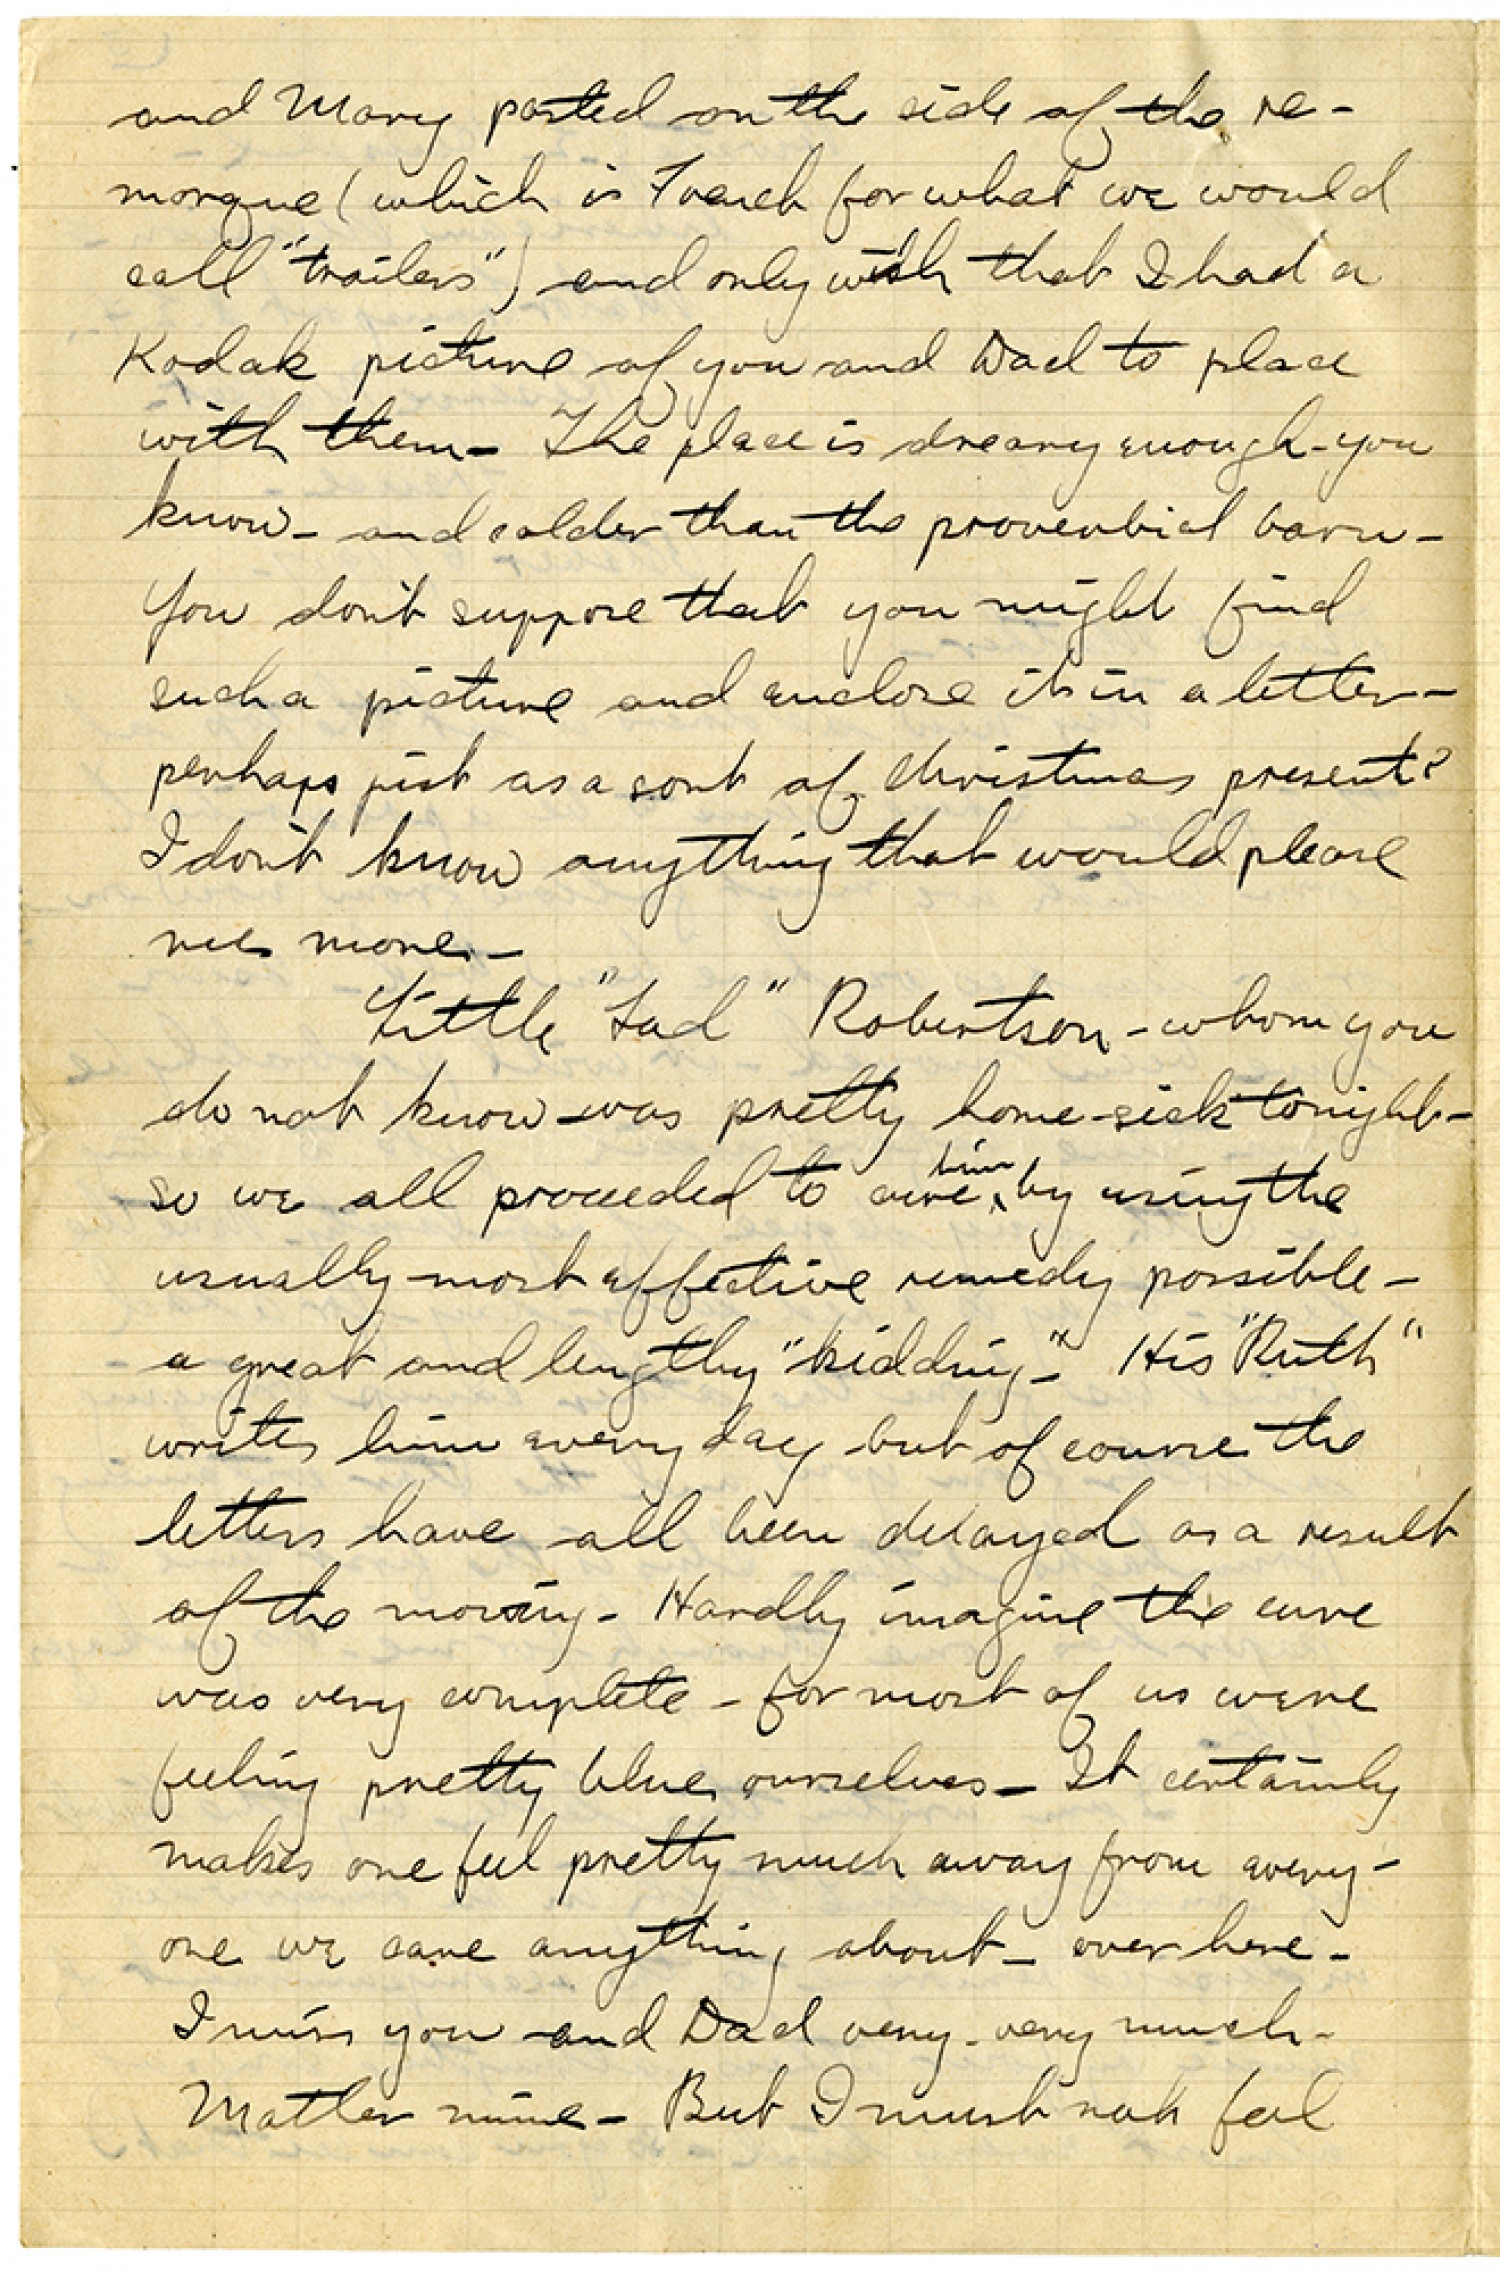 and Mary pasted on the side of the re-
morque (which is French for what we would
call "trailers") and only wish that I had a
Kodak picture of you and Dad to place
with them - The place is dreary enough - you
know - and colder than the proverbial barn -
You don't suppose that you might find
such a picture and enclose it in a letter -
perhaps just as a sort of Christmas present?
I don't know anything that would please
me more -
Little "Tad" Robertson - whom you
do not know - was pretty home-sick tonight -
so we all proceeded to cure him by using the
usually most effective remedy possible -
a great and lengthy "kidding" - His "Ruth"
writes him every day but of course the
letters have all been delayed as a result
of the moving - Hardly imagine the cure
was very complete - for most of us were
feeling pretty blue ourselves - It certainly
makes one feel pretty much away from every-
one we care anything about - over here -
I miss you and Dad very - very much -
Mother mine - But I must not feel